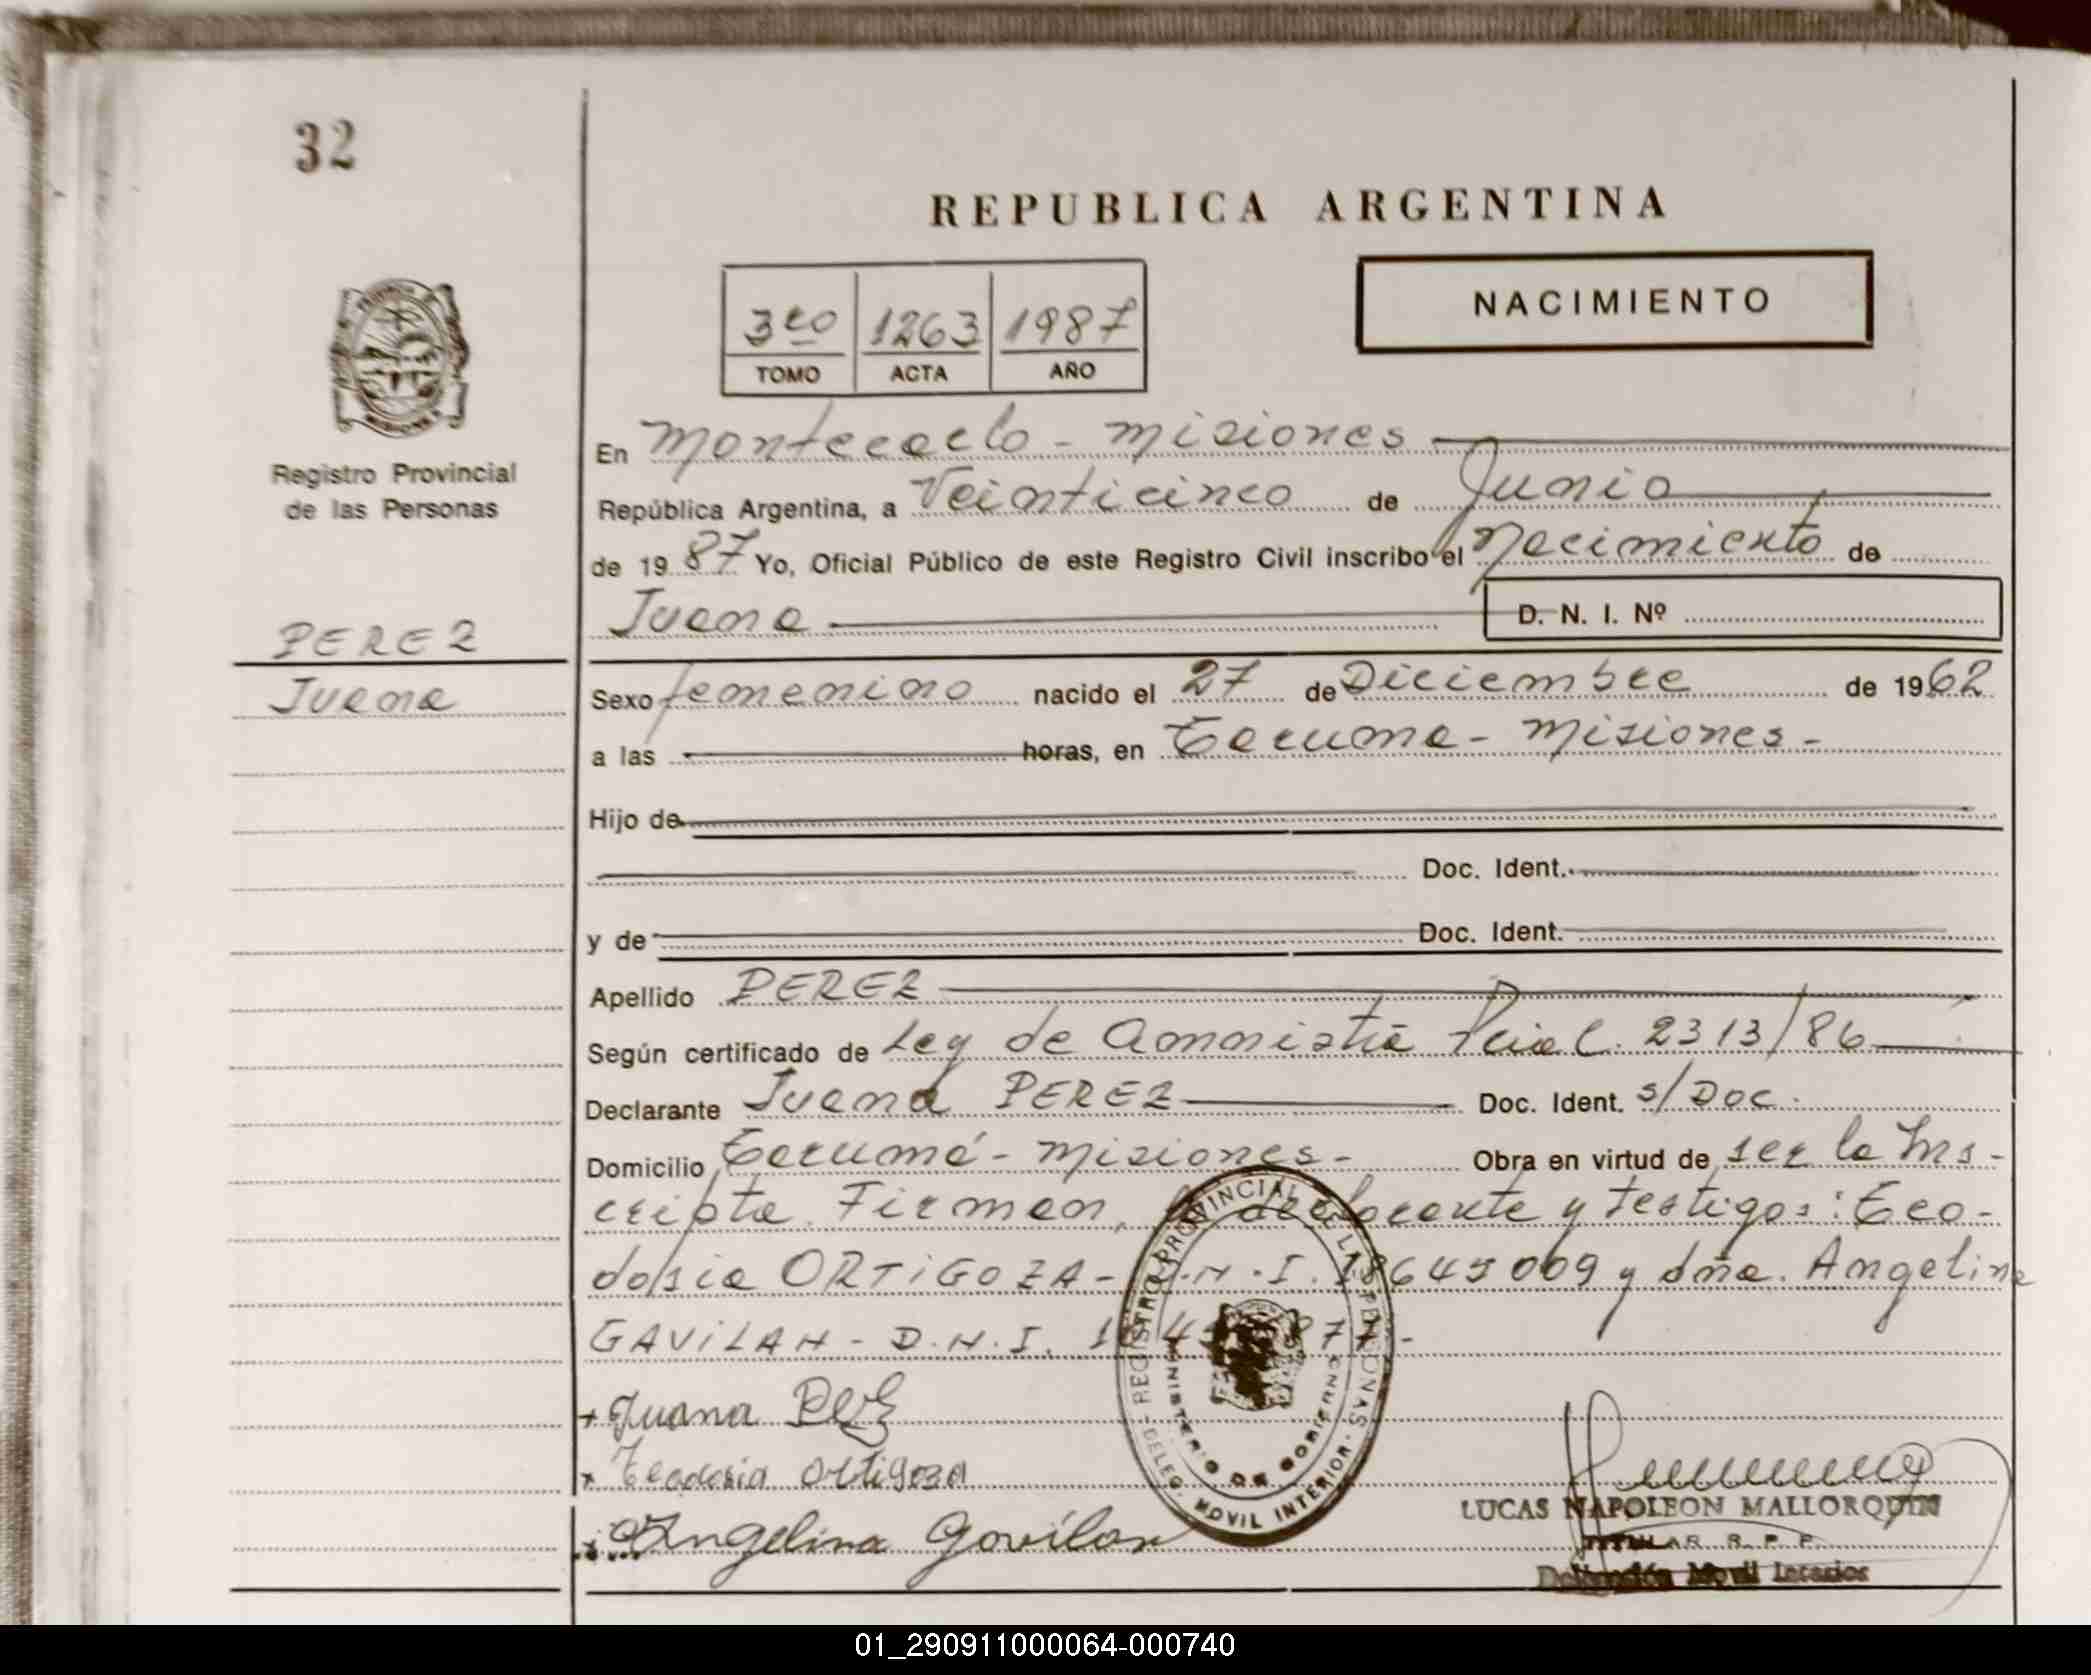 32
REPUBLICA ARGENTINA
NACIMIENTO
3ro 1263 1987
TOMO ACTA AÑO
Registro Provincial
de las Personas
En Montecarlo - Misiones
República Argentina, a Veinticinco de Junio
de 1987 Yo, Oficial Público de este Registro Civil inscribo el Nacimiento de
Juana D. N. I. Nº
PEREZ
Juana
Sexo femenino nacido el 27 de Diciembre de 1962
a las horas, en Taruma - Misiones -
Hijo de
Doc. Ident.
y de Doc. Ident.
Apellido PEREZ
Según certificado de Ley de Amnistia Pcial. 2313/86
Declarante Juana PEREZ Doc. Ident. s/Doc.
Domicilio Tarumá - Misiones - Obra en virtud de ser la Ins-
cripta. Firman, la declarante y testigos: Teo-
dosia ORTIGOZA - D.N.I. 18645009 y dña. Angelina
GAVILAN - D.N.I.
x Juana Perez
x Teodosia Ortigoza
x Angelina Gavilan
REGISTRO PROVINCIAL DE LAS PERSONAS
MINISTERIO DE GOBIERNO
DELEG. MOVIL INTERIOR
LUCAS NAPOLEON MALLORQUIN
TITULAR R. P. P.
Delegación Movil Interior
01_290911000064-000740